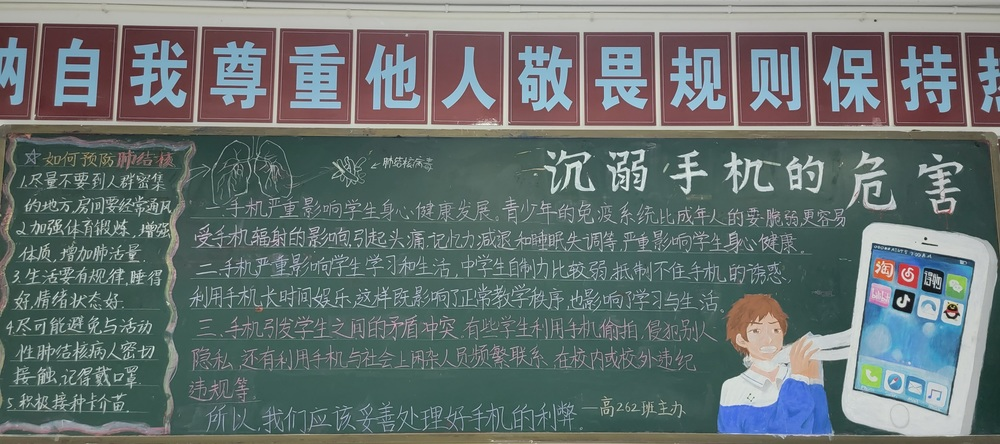 纳自我尊重他人敬畏规则保持热
☆如何预防肺结核
1.尽量不要到人群密集
的地方,房间要经常通风
2.加强体育锻炼,增强
体质,增加肺活量
3.生活要有规律,睡得
好,情绪状态好.
4.尽可能避免与活动
性肺结核病人密切
接触,记得戴口罩
5.积极接种卡介苗.
←肺结核病毒
沉溺手机的危害
一.手机严重影响学生身心健康发展。青少年的免疫系统比成年人的要脆弱更容易
受手机辐射的影响,引起头痛,记忆力减退和睡眠失调等,严重影响学生身心健康.
二.手机严重影响学生学习和生活,中学生自制力比较弱,抵制不住手机的诱惑.
利用手机长时间娱乐,这样既影响了正常教学秩序,也影响了学习与生活。
三.手机引发学生之间的矛盾冲突.有些学生利用手机偷拍,侵犯别人
隐私,还有利用手机与社会上闲杂人员频繁联系,在校内或校外违纪
违规等.
所以,我们应该妥善处理好手机的利弊。
—高262班主办
淘
得物